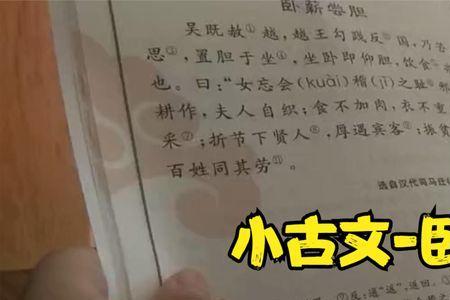 卧薪尝胆
吴既赦越，越王勾践反①国，乃苦
思③，置胆于坐④，坐卧即仰胆，饮食
也。曰：“女忘会(kuài)稽(jī)之耻
耕作，夫人自织；食不加肉，衣不重
采⑦；折节下贤人⑧，厚遇宾客⑨；振贫
百姓同其劳⑪。
选自汉代司马迁
小古文-卧